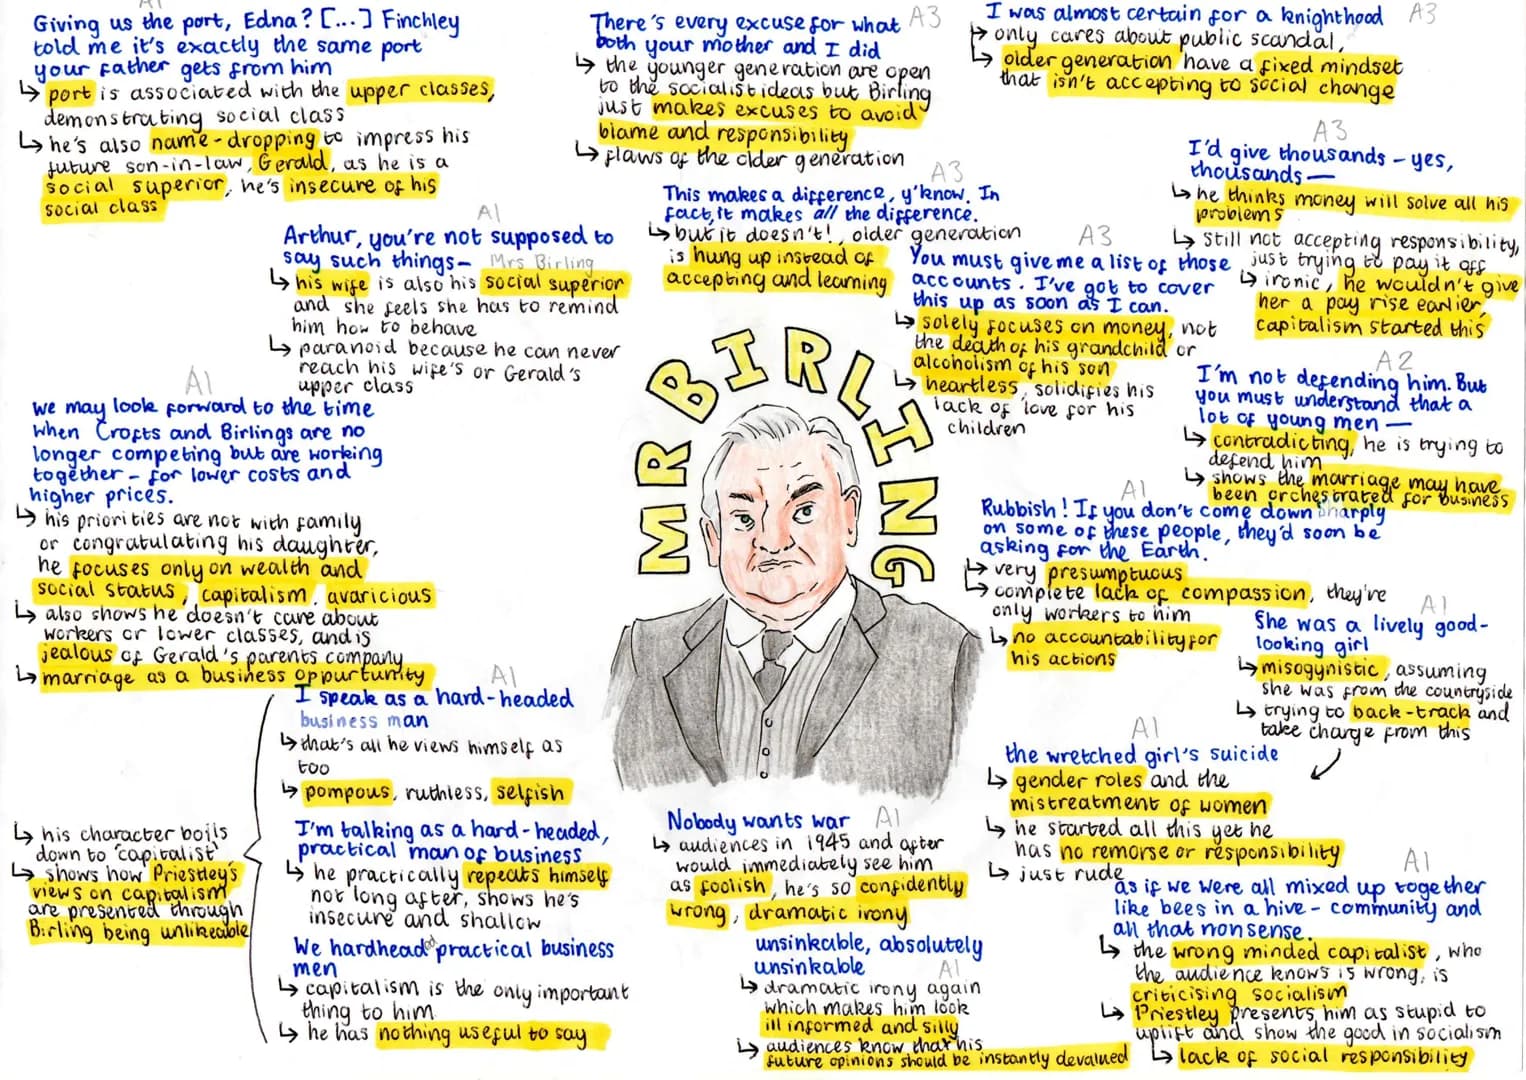 A1
Giving us the port, Edna? [...] Finchley
told me it's exactly the same port
your father gets from him
↳ port is associated with the upper classes,
demonstrating social class
↳ he's also name-dropping to impress his
future son-in-law, Gerald, as he is a
social superior, he's insecure of his
social class
There's every excuse for what A3
both your mother and I did
↳ the younger generation are open
to the socialist ideas but Birling
just makes excuses to avoid
blame and responsibility
↳ flaws of the older generation
I was almost certain for a knighthood A3
↳ only cares about public scandal,
↳ older generation have a fixed mindset
that isn't accepting to social change
A3
I'd give thousands - yes,
thousands —
↳ he thinks money will solve all his
problems
↳ still not accepting responsibility,
just trying to pay it off
↳ ironic, he wouldn't give
her a pay rise earlier,
capitalism started this
A3
This makes a difference, y'know. In
fact, it makes all the difference.
↳ but it doesn't!, older generation
is hung up instead of
accepting and learning
A1
Arthur, you're not supposed to
say such things - Mrs Birling
↳ his wife is also his social superior
and she feels she has to remind
him how to behave
↳ paranoid because he can never
reach his wife's or Gerald's
upper class
A3
You must give me a list of those
accounts. I've got to cover
this up as soon as I can.
↳ solely focuses on money, not
the death of his grandchild or
alcoholism of his son
↳ heartless, solidifies his
lack of love for his
children
A2
I'm not defending him. But
you must understand that a
lot of young men —
↳ contradicting, he is trying to
defend him
↳ shows the marriage may have
been orchestrated for business
A1
we may look forward to the time
when Crofts and Birlings are no
longer competing but are working
together - for lower costs and
higher prices.
↳ his priorities are not with family
or congratulating his daughter,
he focuses only on wealth and
social status, capitalism. avaricious
↳ also shows he doesn't care about
workers or lower classes, and is
jealous of Gerald's parents company
↳ marriage as a business oppurtunity
MR BIRLING
A1
Rubbish! If you don't come down sharply
on some of these people, they'd soon be
asking for the Earth.
↳ very presumptuous
↳ complete lack of compassion, they're
only workers to him
↳ no accountability for
his actions
A1
She was a lively good-
looking girl
↳ misogynistic, assuming
she was from the countryside
↳ trying to back-track and
take charge from this
A1
I speak as a hard-headed
business man
↳ that's all he views himself as
too
↳ pompous, ruthless, selfish
I'm talking as a hard-headed,
practical man of business
↳ he practically repeats himself
not long after, shows he's
insecure and shallow
We hardheaded practical business
men
↳ capitalism is the only important
thing to him
↳ he has nothing useful to say
↳ his character boils
down to 'capitalist'
↳ shows how Priestley's
views on capitalism
are presented through
Birling being unlikeable
A1
the wretched girl's suicide
↳ gender roles and the
mistreatment of women
↳ he started all this yet he
has no remorse or responsibility
↳ just rude
Nobody wants war A1
↳ audiences in 1945 and after
would immediately see him
as foolish, he's so confidently
wrong, dramatic irony
unsinkable, absolutely
unsinkable A1
↳ dramatic irony again
which makes him look
ill informed and silly
↳ audiences know that his
future opinions should be instantly devalued
A1
as if we were all mixed up together
like bees in a hive - community and
all that nonsense.
↳ the wrong minded capitalist, who
the audience knows is wrong, is
criticising socialism
↳ Priestley presents him as stupid to
uplift and show the good in socialism
↳ lack of social responsibility